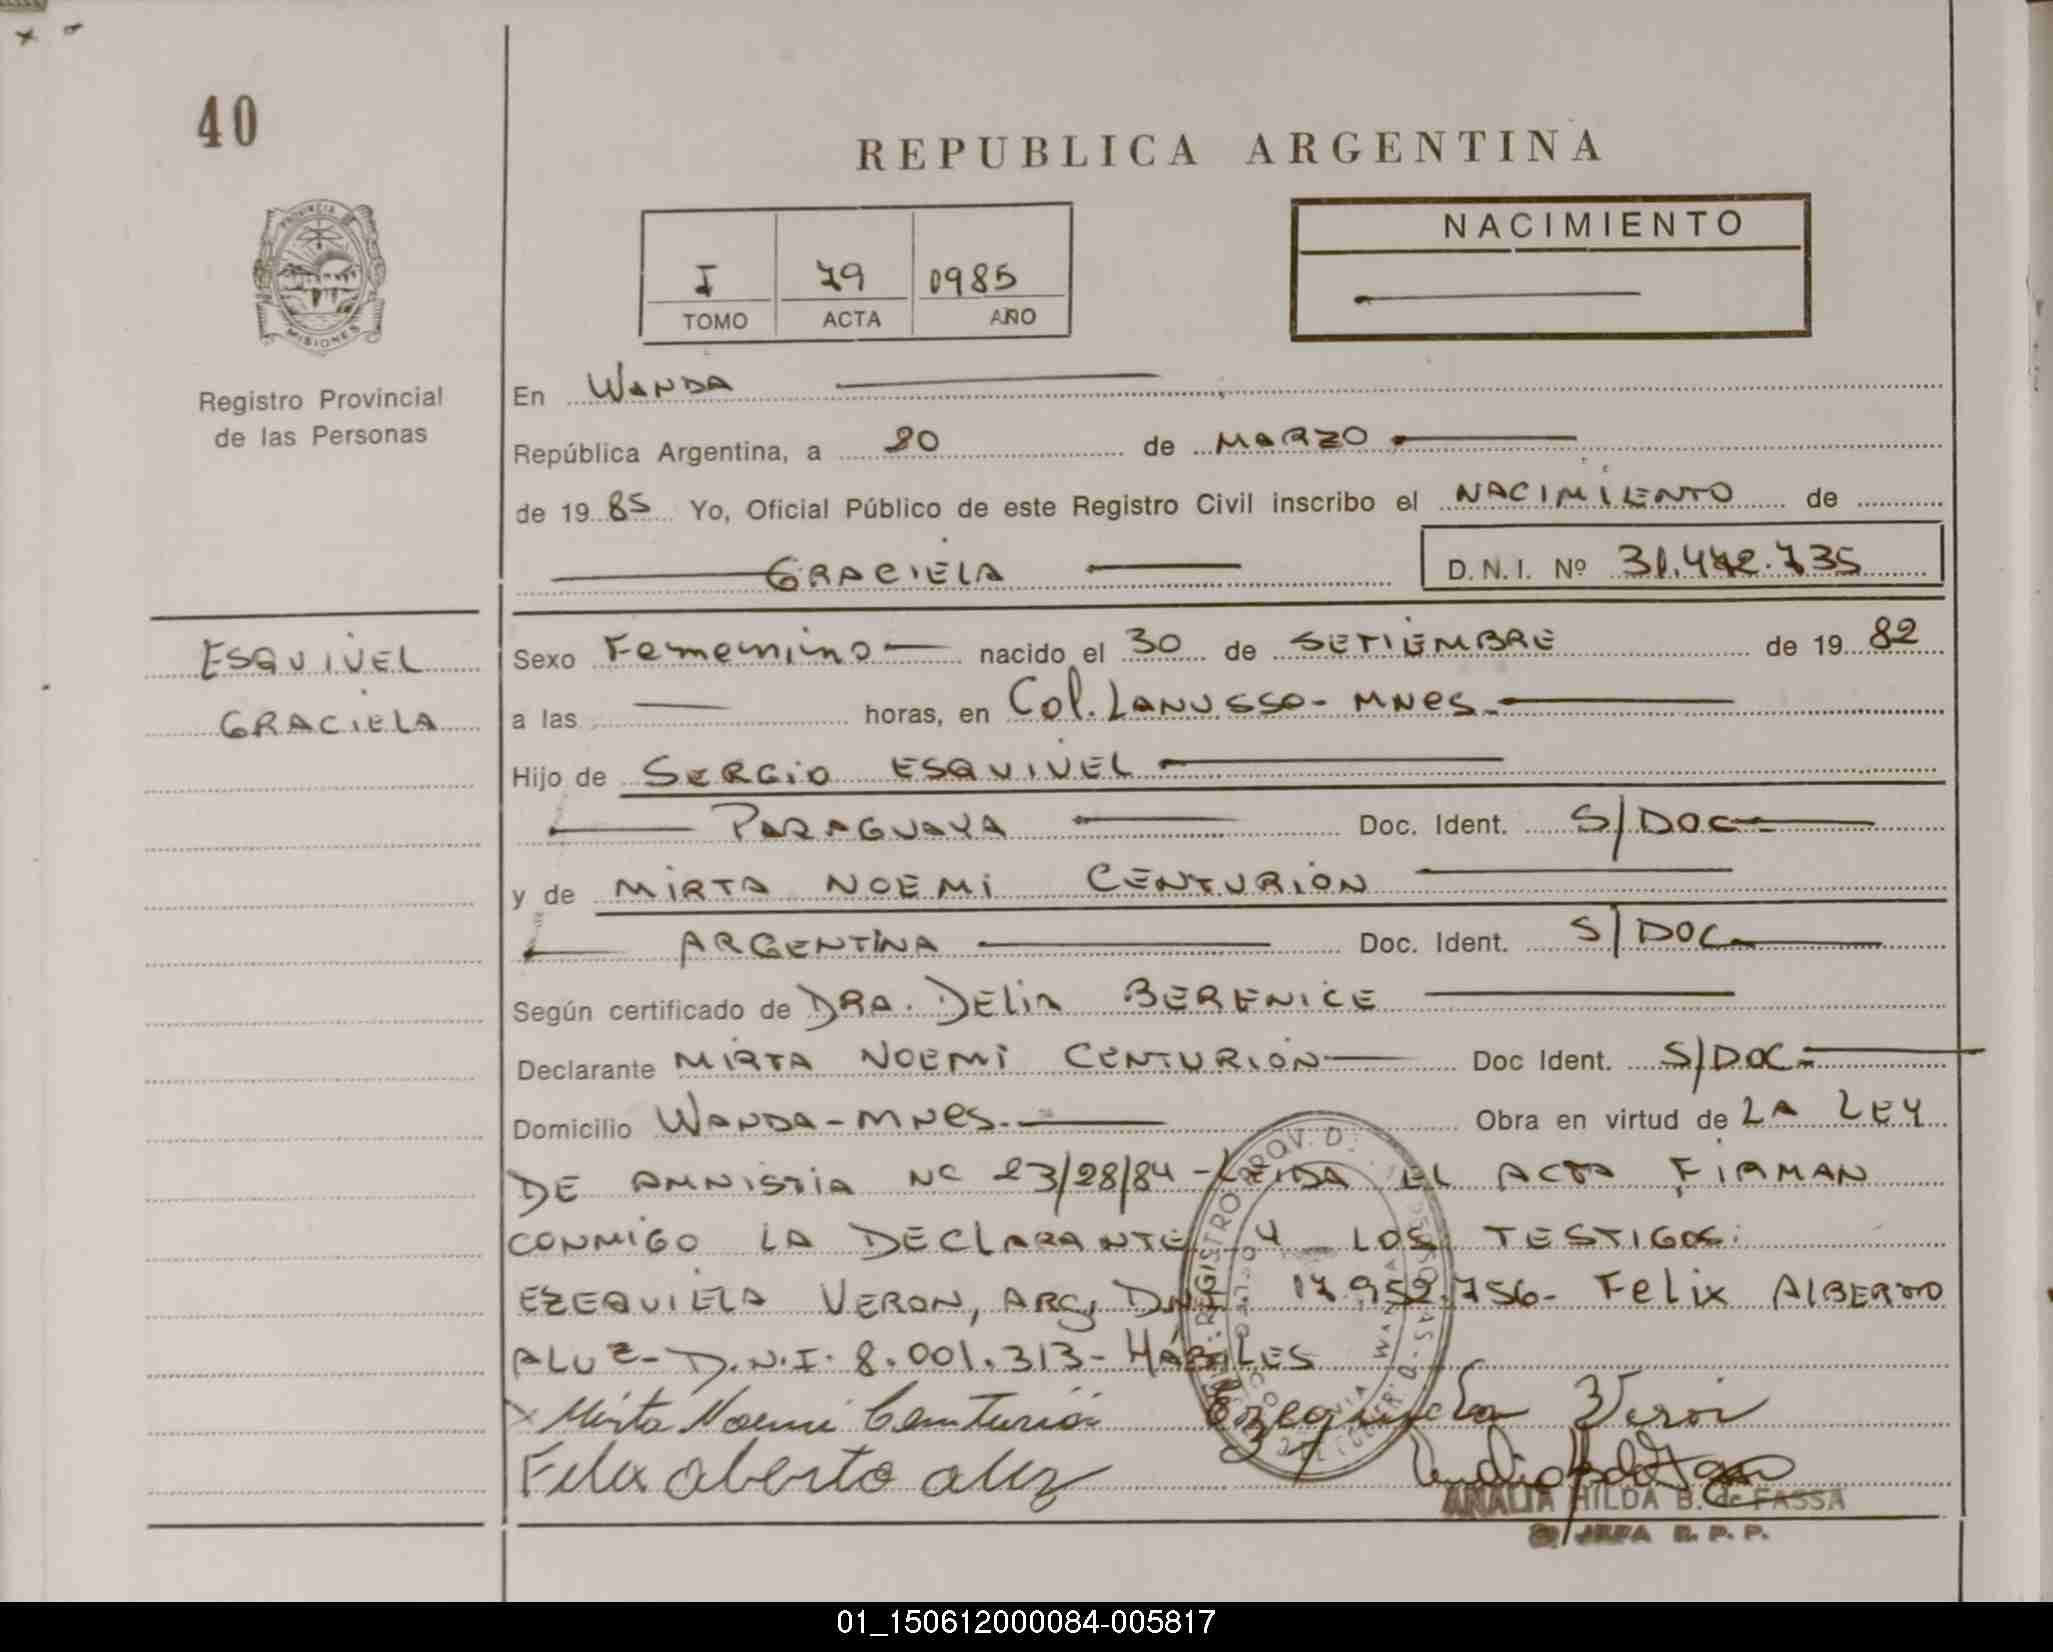 40
REPUBLICA ARGENTINA
PROVINCIA DE
MISIONES
Registro Provincial
de las Personas
I 79 0985
TOMO ACTA AÑO
NACIMIENTO
En WANDA
República Argentina, a 20 de MARZO
de 19 85 Yo, Oficial Público de este Registro Civil inscribo el NACIMIENTO de
GRACIELA D.N.I. Nº 31.472.735
ESQUIVEL
GRACIELA
Sexo Femenino nacido el 30 de SETIEMBRE de 19 82
a las horas, en Col. LANUSSO - MNES.
Hijo de SERGIO ESQUIVEL
PARAGUAYA Doc. Ident. S/DOC
y de MIRTA NOEMI CENTURION
ARGENTINA Doc. Ident. S/DOC
Según certificado de DRA. DELIA BERENICE
Declarante MIRTA NOEMI CENTURION Doc Ident. S/DOC
Domicilio WANDA - MNES. Obra en virtud de LA LEY
DE AMNISTIA Nº 23/28/84 - LEIDA EL ACTA FIRMAN
CONMIGO LA DECLARANTE Y LOS TESTIGOS:
EZEQUIELA VERON, ARG, DNI 17.952.756 - FELIX ALBERTO
ALUZ - D.N.I. 8.001.313 - HÁBILES
Mirta Noemi Centurión Ezequiela Veron
Felix alberto aluz
ANALIA HILDA B. de FASSA
JEFA R. P. P.
01_150612000084-005817